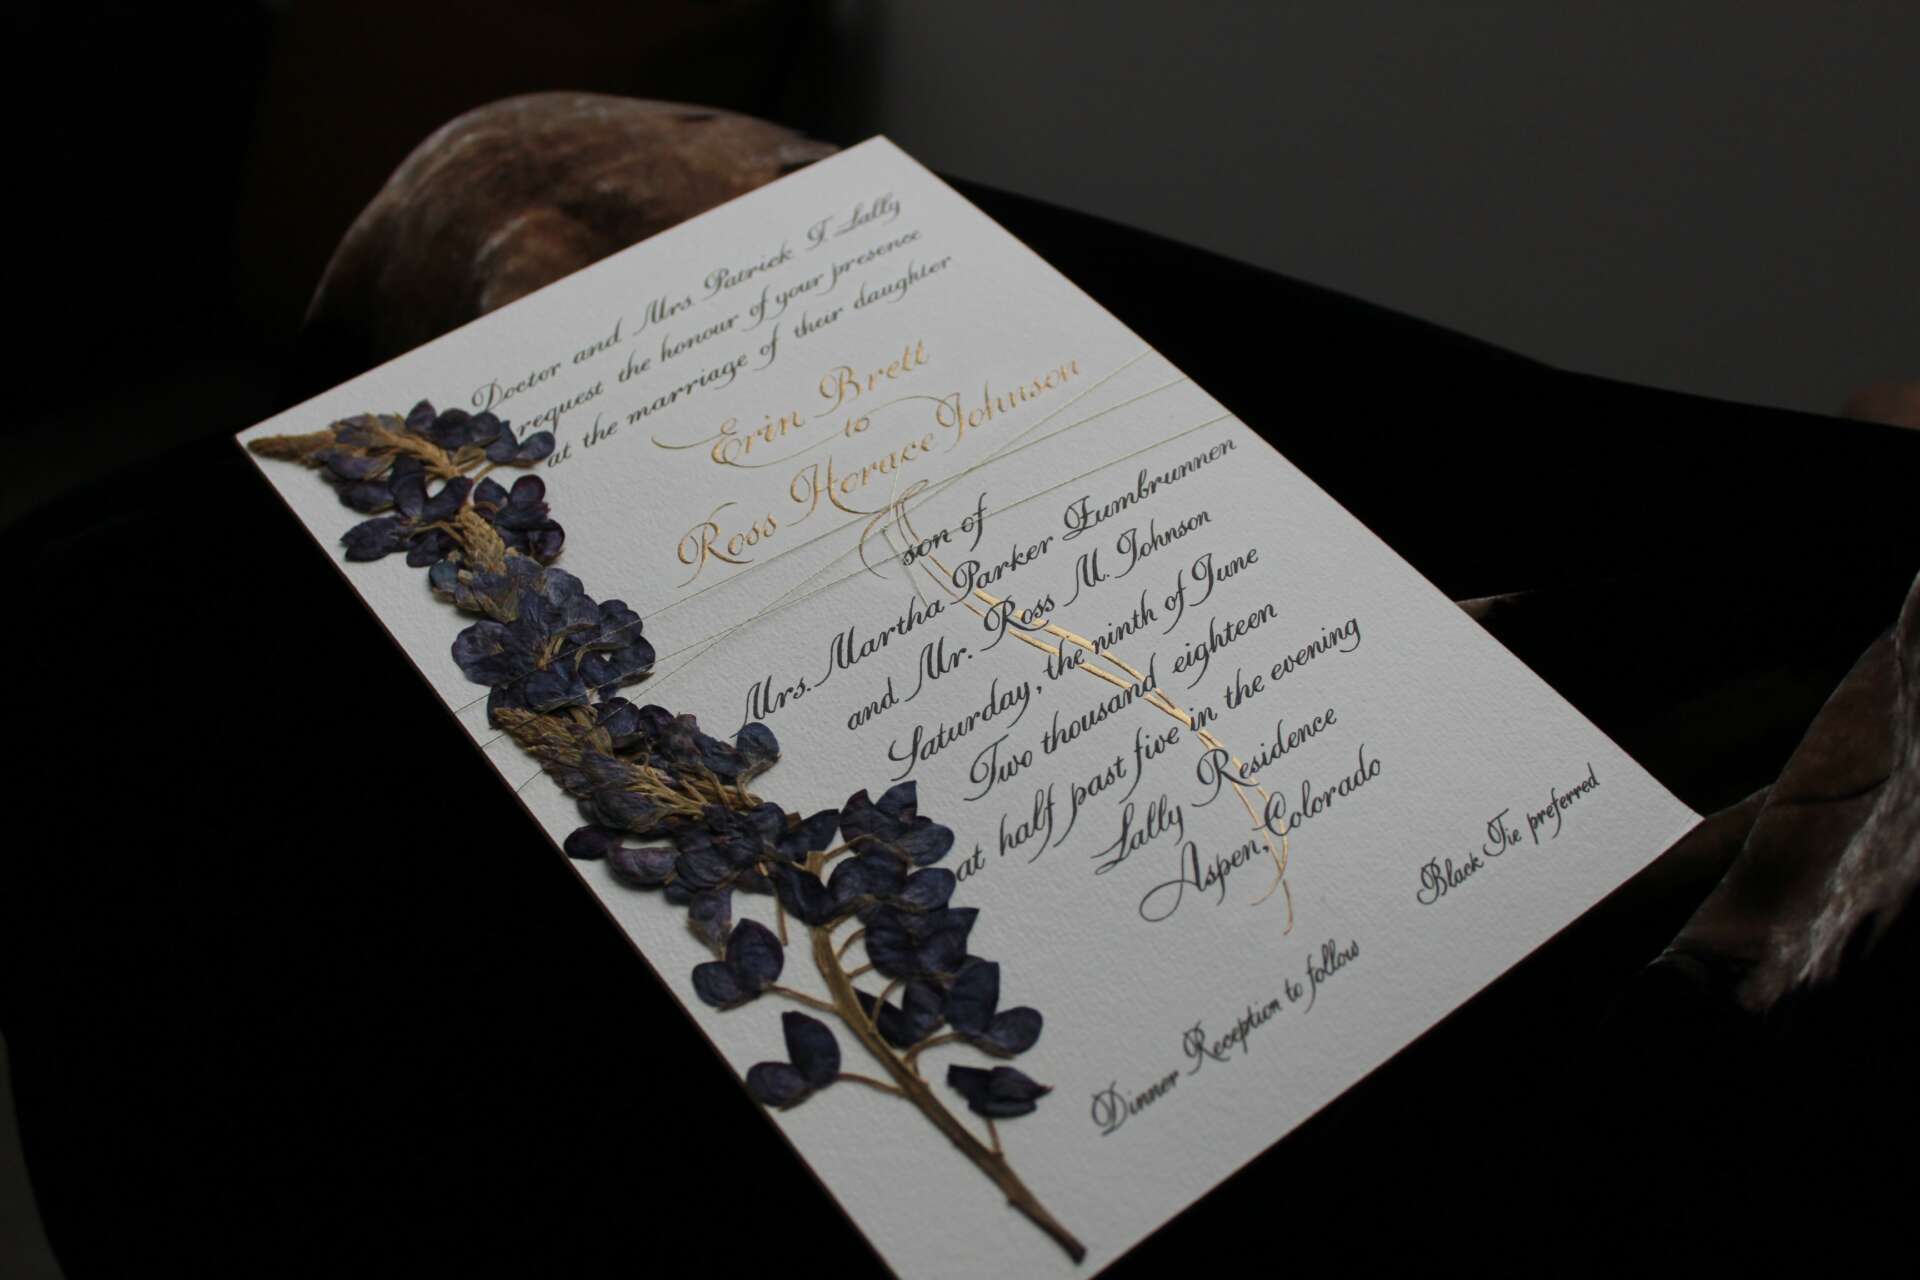 Doctor and Mrs. Patrick T. Lally
request the honour of your presence
at the marriage of their daughter
Erin Brett
to
Ross Horace Johnson
son of
Mrs. Martha Parker Zumbrunnen
and Mr. Ross M. Johnson
Saturday, the ninth of June
Two thousand and eighteen
at half past five in the evening
Lally Residence
Aspen, Colorado
Dinner Reception to follow
Black Tie preferred